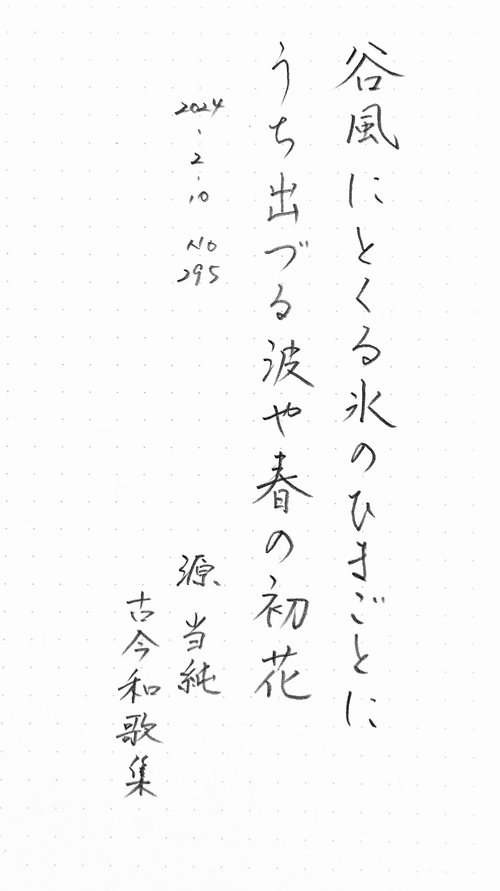 谷風にとくる氷のひまごとに
うち出づる波や春の初花
2024.2.10 No 295
源 当純
古今和歌集